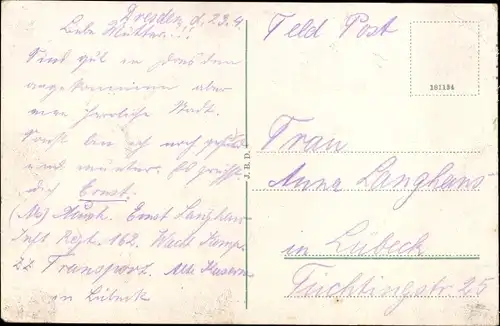 Dresden, d. 23.4.
Liebe Mutter!!!
Sind gut in Dresden
angekommen aber
herrliche Stadt.
Sonst bin ich noch gesund
und munter. Es grüßt
dich Ernst.
Musk. Ernst Langhans
Inft Regt. 162. Wach Komp.
Z. Z Transport. Alte Kaserne
in Lübeck
Feld Post
181134
J. B. D.
Frau
Anna Langhans
in Lübeck
Füchtingstr 25